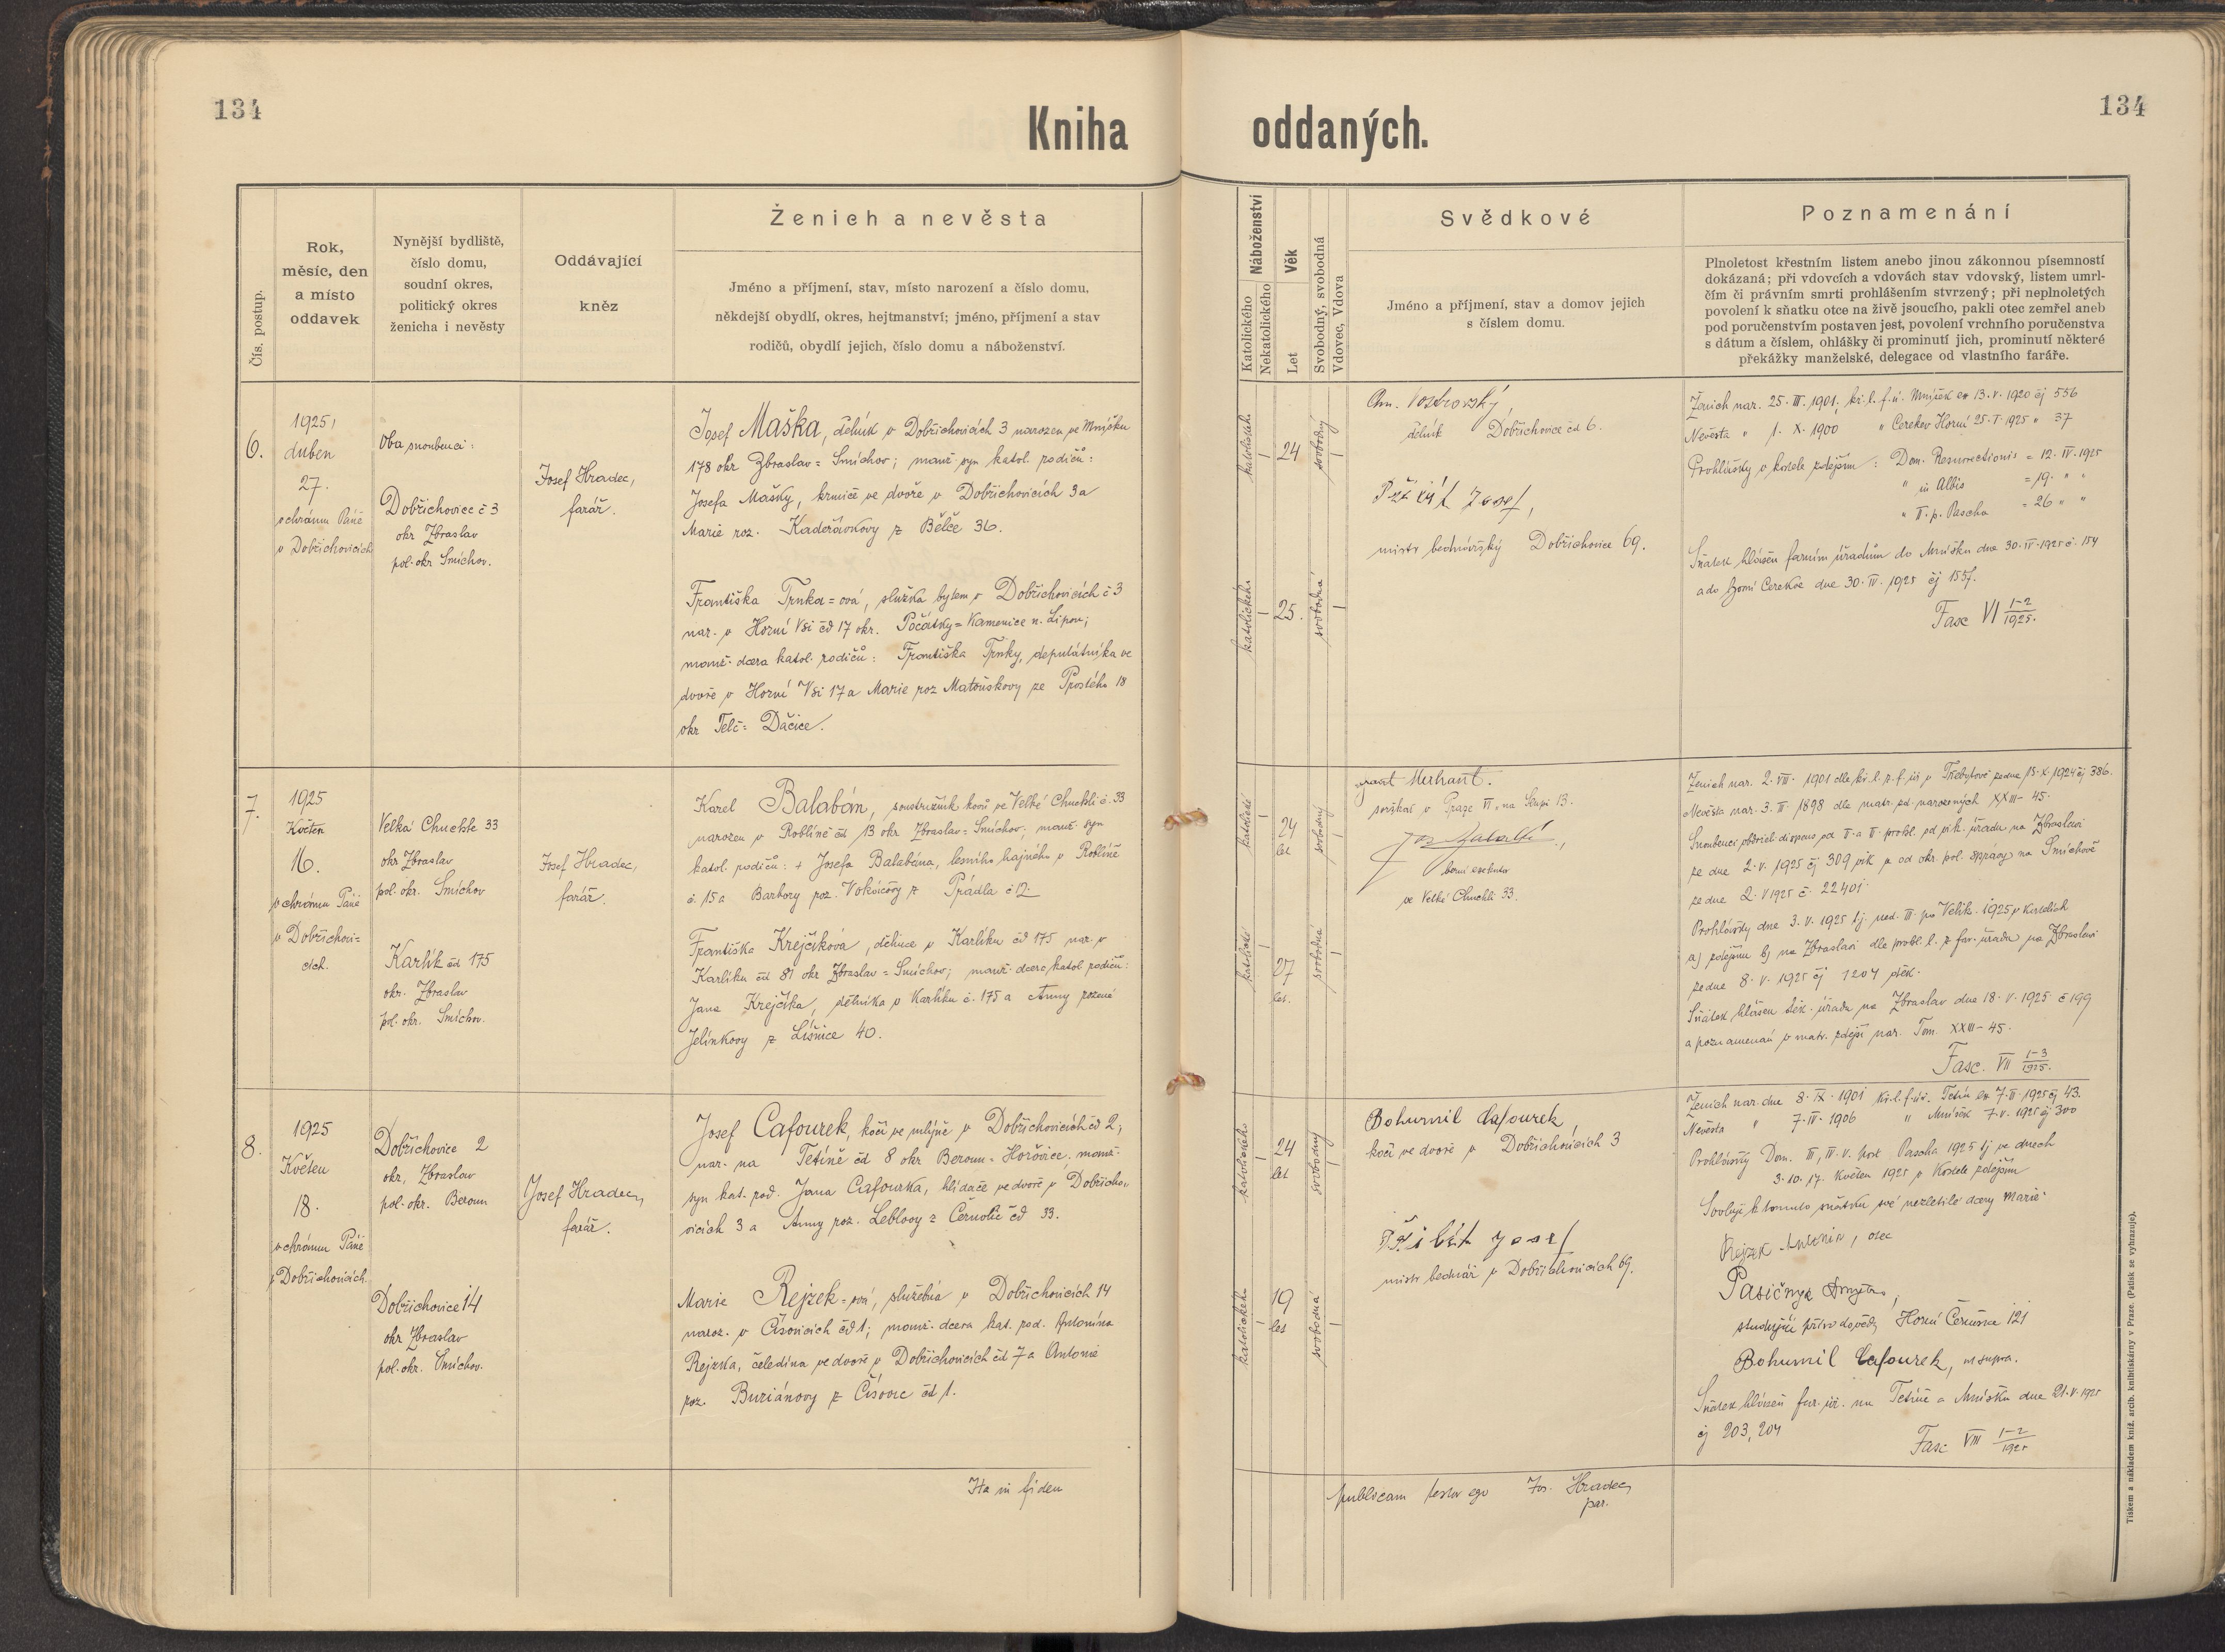 134
134
Kniha
oddaných.
Čís. postup.
Rok,
měsíc, den
a místo
oddavek
Nynější bydliště,
číslo domu,
soudní okres,
politický okres
ženicha i nevěsty
Oddávající
kněz
Ženich a nevěsta
Jméno a příjmení, stav, místo narození a číslo domu,
někdejší obydlí, okres, hejtmanství; jméno, příjmení a stav
rodičů, obydlí jejich, číslo domu a náboženství.
Náboženství
Katolického
Nekatolického
Věk
Let
Svobodný, svobodná
Vdovec, Vdova
Svědkové
Jméno a příjmení, stav a domov jejich
s číslem domu.
Poznamenání
Plnoletost křestním listem anebo jinou zákonnou písemností
dokázaná; při vdovcích a vdovách stav vdovský, listem umrl-
čím či právním smrti prohlášením stvrzený; při neplnoletých
povolení k sňatku otce na živě jsoucího, pakli otec zemřel aneb
pod poručenstvím postaven jest, povolení vrchního poručenstva
s dátum a číslem, ohlášky či prominutí jich, prominutí některé
překážky manželské, delegace od vlastního faráře.
6.
1925,
duben
27.
v chrámu Páně
v Dobřichovicích
Oba snoubenci:
Dobřichovice č 3
okr Zbraslav
pol. okr Smíchov.
Josef Hradec,
farář.
Josef Maška, dělník v Dobřichovicích 3 narozen ve Mníšku
178 okr Zbraslav = Smíchov; manž. syn katol. rodičů:
Josefa Mašky, krmiče ve dvoře v Dobřichovicích 3 a
Marie roz. Kadeřávkovy z Bělče 36.
Františka Trnka=ová, služka bytem v Dobřichovicích č 3
nar. v Horní Vsi čd 17 okr. Počátky = Kamenice n. Lipou;
manž. dcera katol. rodičů: Františka Trnky, deputátníka ve
dvoře v Horní Vsi 17 a Marie roz Matouškovy ze Prostého 18
okr Telč = Dačice.
katolického
24
svobodný
katolického
25.
svobodná
Ant. Vostrovský
dělník Dobřichovice čd 6.
Přibyl Josef,
mistr bednářský Dobřichovice 69.
Ženich nar. 25. III. 1901, kř. l. f. ú. Mníšek ex 13. V. 1920 čj 556
Nevěsta " 1. X. 1900 " Cerekev Horní 25. I. 1925 " 37
Prohlášky v kostele zdejším: Dom. Resurrectionis = 12. IV. 1925
" in Albis = 19. " "
" II. p. Pascha = 26 " "
Sňatek hlášen farním úřadům do Mníšku dne 30. IV. 1925 č. 154
a do Horní Cerekve dne 30. IV. 1925 čj 155.
Fasc VI 1-2/1925.
7.
1925
Květen
16.
v chrámu Páně
v Dobřichovi=
cích.
Velká Chuchle 33
okr Zbraslav
pol. okr. Smíchov
Karlík čd 175
okr. Zbraslav
pol. okr. Smíchov.
Josef Hradec,
farář.
Karel Balabán, soustružník kovů ve Velké Chuchli č. 33
narozen v Roblíně čd 13 okr Zbraslav = Smíchov; manž. syn
katol. rodičů: + Josefa Balabána, lesního hajného v Roblíně
č. 15 a Barbory roz. z Prádla č 12.
Františka Krejčíková, dělnice v Karlíku čd 175 nar. v
Karlíku čd 81 okr Zbraslav = Smíchov; manž. dcera katol rodičů:
Jana Krejčíka, dělníka v Karlíku č. 175 a Anny rozené
Jelínkovy z Líšnice 40.
katolické
24
let
svobodný
katolické
27
let.
svobodná
v Praze VI, na Slupi 13.
berní exekutor
ve Velké Chuchli 33.
Ženich nar. 2. VII. 1901 dle kř. l. z f. úř v Třebotově ze dne 15. X. 1924 čj 386.
Nevěsta nar. 3. II. 1898 dle matr. zd. narozených XXIII - 45.
Snoubenci obdrželi dispens od II. a III. prohl. od vik. úřadu na Zbraslavi
ze dne 2. V. 1925 čj 309 vik a od okr. pol. správy na Smíchově
ze dne 2. V 1925 č. 22401.
Prohlášky dne 3. V. 1925 tj. ned. III. po Velik. 1925 v kostelích
a) zdejším b) na Zbraslavi dle prohl. l. z far. úřadu na Zbraslavi
ze dne 8. V. 1925 čj 1204 děk.
Sňatek hlášen děk. úřadu na Zbraslav dne 18. V. 1925 č 199
a poznamenán v matr. zdejší nar. Tom. XXIII - 45.
Fasc. VII 1-3/1925.
8.
1925
Květen
18.
v chrámu Páně
v Dobřichovicích
Dobřichovice 2
okr, Zbraslav
pol. okr. Beroun
Dobřichovice 14
okr Zbraslav
pol. okr. Smíchov.
Josef Hradec,
farář.
Josef Cafourek, kočí ve mlýně v Dobřichovicích čd 2,
nar. na Tetíně čd 8 okr Beroun = Hořovice. manž.
syn kat. rod. Jana Cafourka, hlídače ve dvoře v Dobřicho=
vicích 3 a Anny roz. Leblovy z Černolic čd 33.
Marie Rejzek=ová, služebná v Dobřichovicích 14
naroz. v Čisovicích čd 1; manž. dcera kat. rod. Antonína
Rejzka, čeledína ve dvoře v Dobřichovicích čd 7 a Antonie
roz. Buriánovy z Čisovic čd 1.
katolického
24
let
svobodný
katolického
19
let
svobodná
Bohumil Cafourek
kočí ve dvoře v Dobřichovicích 3
Přibyl Josef
mistr bednář v Dobřichovicích 69.
Ženich nar. dne 8. IX. 1901 kř. l. f. úř. Tetín ex 7. V. 1925 čj 43.
Nevěsta " 7. IV. 1906 " Mníšek 7. V. 1925 čj 300
Prohlášky Dom. III, IV. V. post Pascha 1925 tj ve dnech
3. 10. 17. Květen 1925 v kostele zdejším
Svoluji k tomuto sňatku své nezletilé dcery Marie:
Rejzek Antonín, otec
Pasičnyk Dmytro,
studující přírodovědy Horní Černošice 121
Bohumil Cafourek, ut supra.
Sňatek hlášen far. úř. na Tetíně a Mníšku dne 21. V. 1925
čj 203, 204
Fasc VIII 1-2/1925
Ita in fidem
publicam testor ego Jos. Hradec,
par.
Tiskem a nákladem kníž. arcib. knihtiskárny v Praze. (Patisk se vyhrazuje).